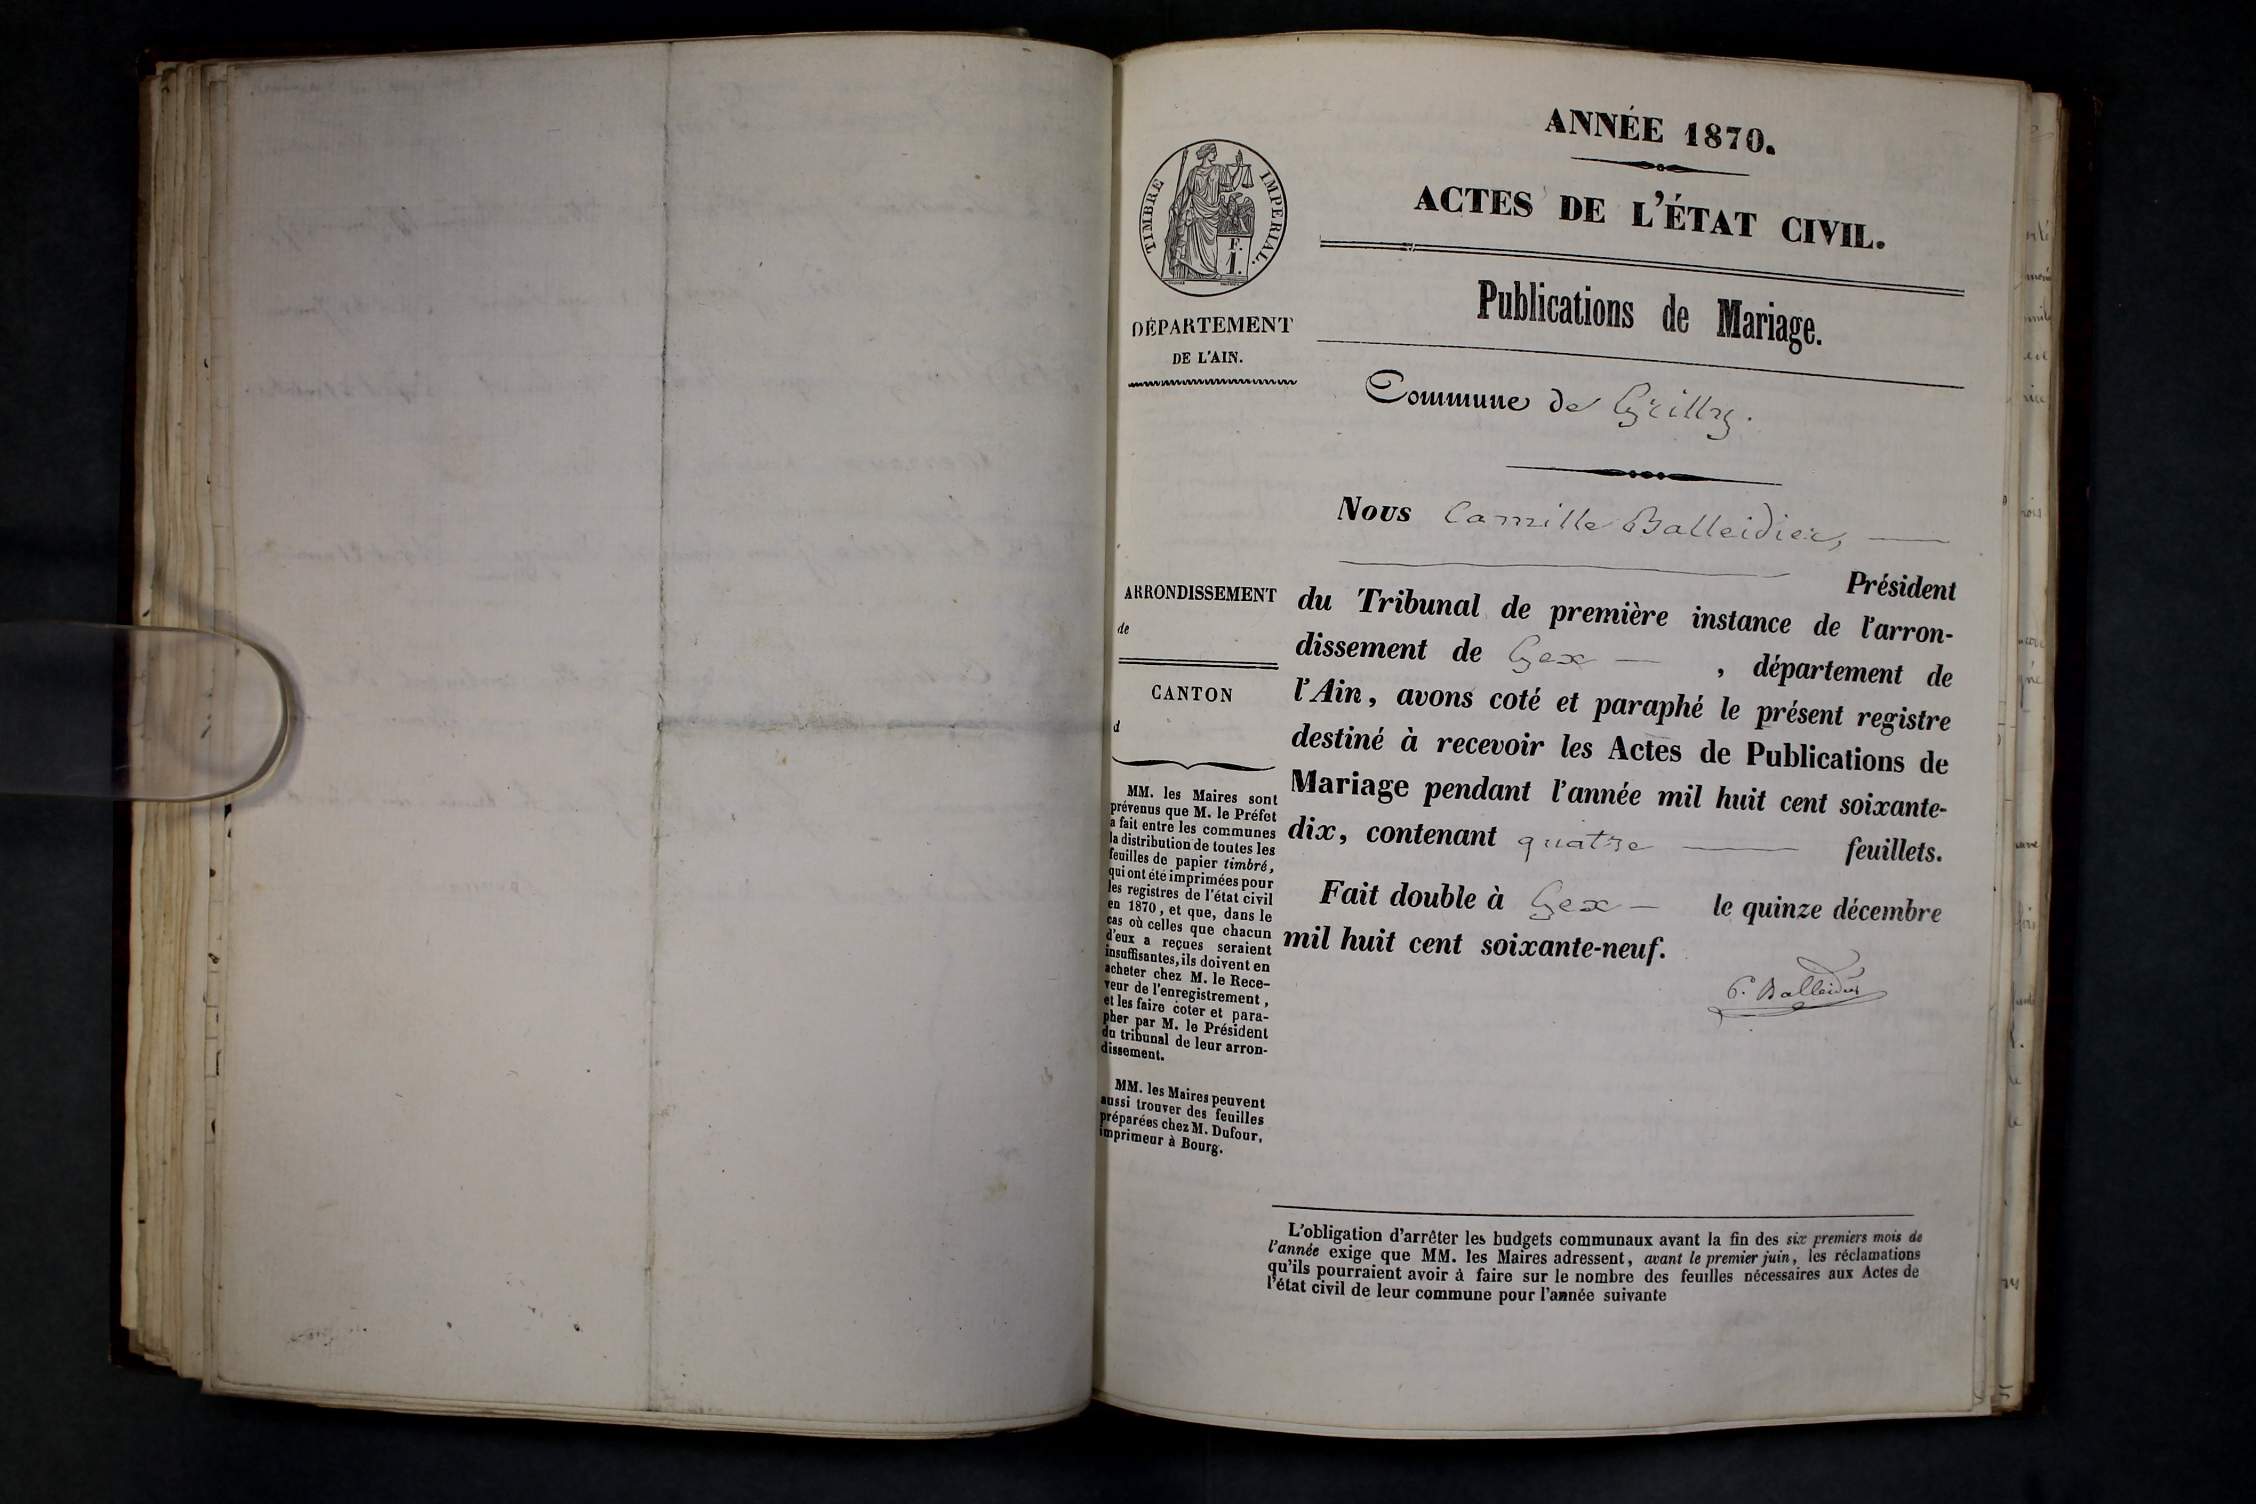 ANNÉE 1870.
ACTES DE L'ÉTAT CIVIL.
Publications de Mariage.
Commune de Grilly.
TIMBRE IMPERIAL.
F.
1.
DÉPARTEMENT
DE L'AIN.
ARRONDISSEMENT
de
CANTON
d
MM. les Maires sont
prévenus que M. le Préfet
a fait entre les communes
la distribution de toutes les
feuilles de papier timbré,
qui ont été imprimées pour
les registres de l'état civil
en 1870, et que, dans le
cas où celles que chacun
d'eux a reçues seraient
insuffisantes, ils doivent en
acheter chez M. le Rece-
veur de l'enregistrement,
et les faire coter et para-
pher par M. le Président
du tribunal de leur arron-
dissement.
MM. les Maires peuvent
aussi trouver des feuilles
préparées chez M. Dufour,
imprimeur à Bourg.
Nous Camille Balleidier,
Président
du Tribunal de première instance de l'arron-
dissement de Gex — , département de
l'Ain, avons coté et paraphé le présent registre
destiné à recevoir les Actes de Publications de
Mariage pendant l'année mil huit cent soixante-
dix, contenant quatre — feuillets.
Fait double à Gex — le quinze décembre
mil huit cent soixante-neuf.
C. Balleidier
L'obligation d'arrêter les budgets communaux avant la fin des six premiers mois de
l'année exige que MM. les Maires adressent, avant le premier juin, les réclamations
qu'ils pourraient avoir à faire sur le nombre des feuilles nécessaires aux Actes de
l'état civil de leur commune pour l'année suivante